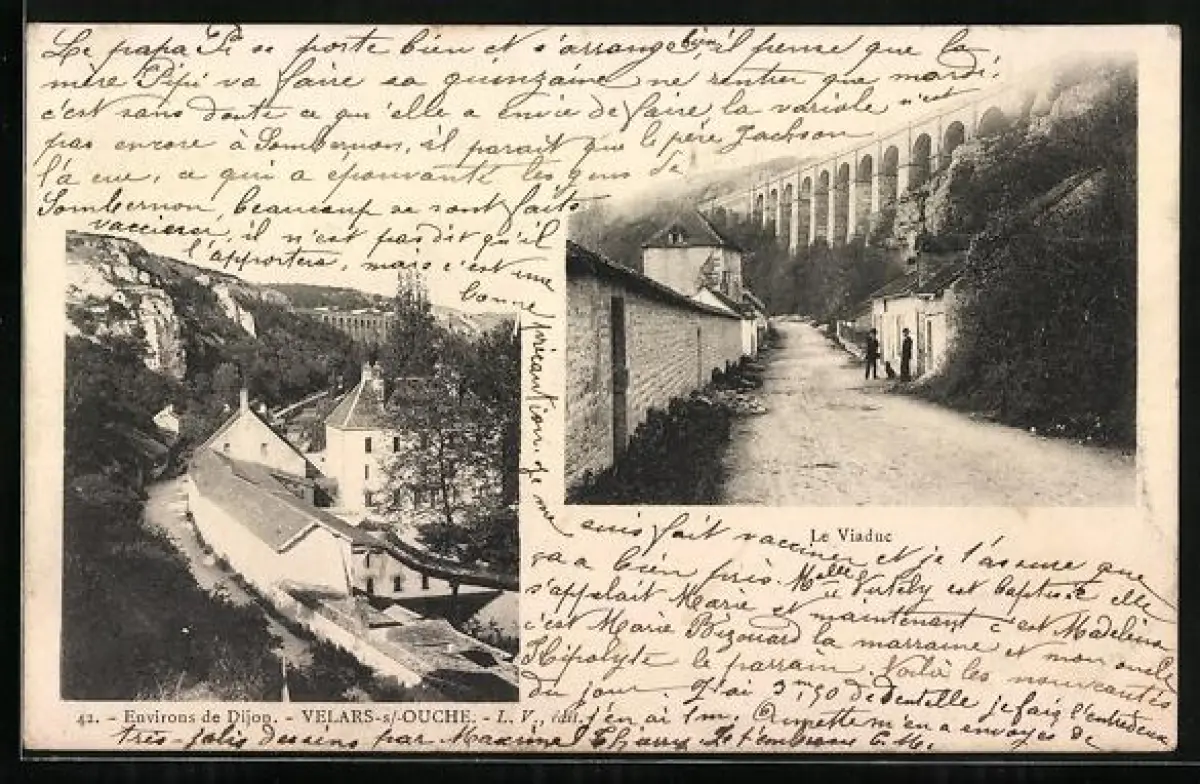 Le papa Pi se porte bien et s'arrange bien, il pense que la
mère Pipi va faire sa quinzaine ne rentrer que mardi.
c'est sans doute ce qu'elle a envie de faire, la variole n'est
pas encore à Sombernon, il parait que le père Jackson
l'a eue, ce qui a épouvanté les gens de
Sombernon, beaucoup se sont faits
vacciner, il n'est pas dit qu'il
l'apportera, mais c'est une
bonne précaution. je me
suis fait vacciner et je t'assure que
ça a bien pris. Melle est baptisée elle
s'appelait Marie et maintenant c'est Madeleine
c'est Marie Bizouard la marraine et mon oncle
Hipolyte le parrain. Voilà les nouveautés
du jour. J'ai 3m,50 de dentelle je fais l'entredeux
j'en ai 1m. m'en a envoyés de
très jolis dessins par Maxime Je t'embrasse
Le Viaduc
42. - Environs de Dijon. - VELARS-s/-OUCHE. - L. V., édit.